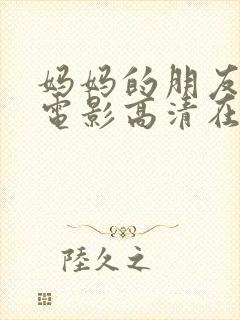 妈妈的朋友
電影高清在
陸久之